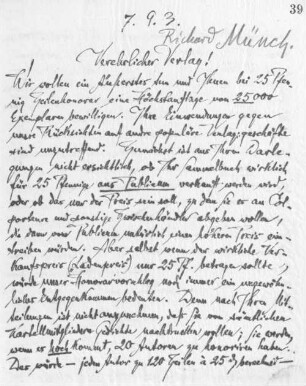 39
7. 9. 3.
Richard Münch.
Verehrlicher Verlag!
Wir wollen ein Äusserstes tun und Ihnen bei 25 Pfen-
nig Zeilenhonorar eine Höchstauflage von 25000
Exemplaren bewilligen. Ihre Einwendungen gegen
unsre Rücksichten auf andre populäre Verlagsgeschäfte
sind unzutreffend. Zunächst ist aus Ihren Darle-
gungen nicht ersichtlich, ob Ihr Sammelbuch wirklich
für 25 Pfennige ans Publicum verkauft werden wird,
oder ob das nur der Preis sein soll, zu dem Sie es an Col-
porteure und sonstige Zwischenhändler abgeben wollen,
die dann vom Publicum natürlich einen höhern Preis ein-
treiben würden. Aber selbst wenn der wirkliche Ver-
kaufspreis (Ladenpreis) nur 25 Pf. betragen sollte,
würde unser Honorarvorschlag noch immer ein ungewöhn-
liches Entgegenkommen bedeuten. Denn nach Ihren Mit-
teilungen ist nicht anzunehmen, daß Sie von sämtlichen
Kartellmitgliedern Gedichte nachdrucken wollen; Sie werden
wenn es hoch kommt, 20 Autoren zu honoriren haben.
Das würde — jeden Autor zu 120 Zeilen à 25 Pf berechnet —